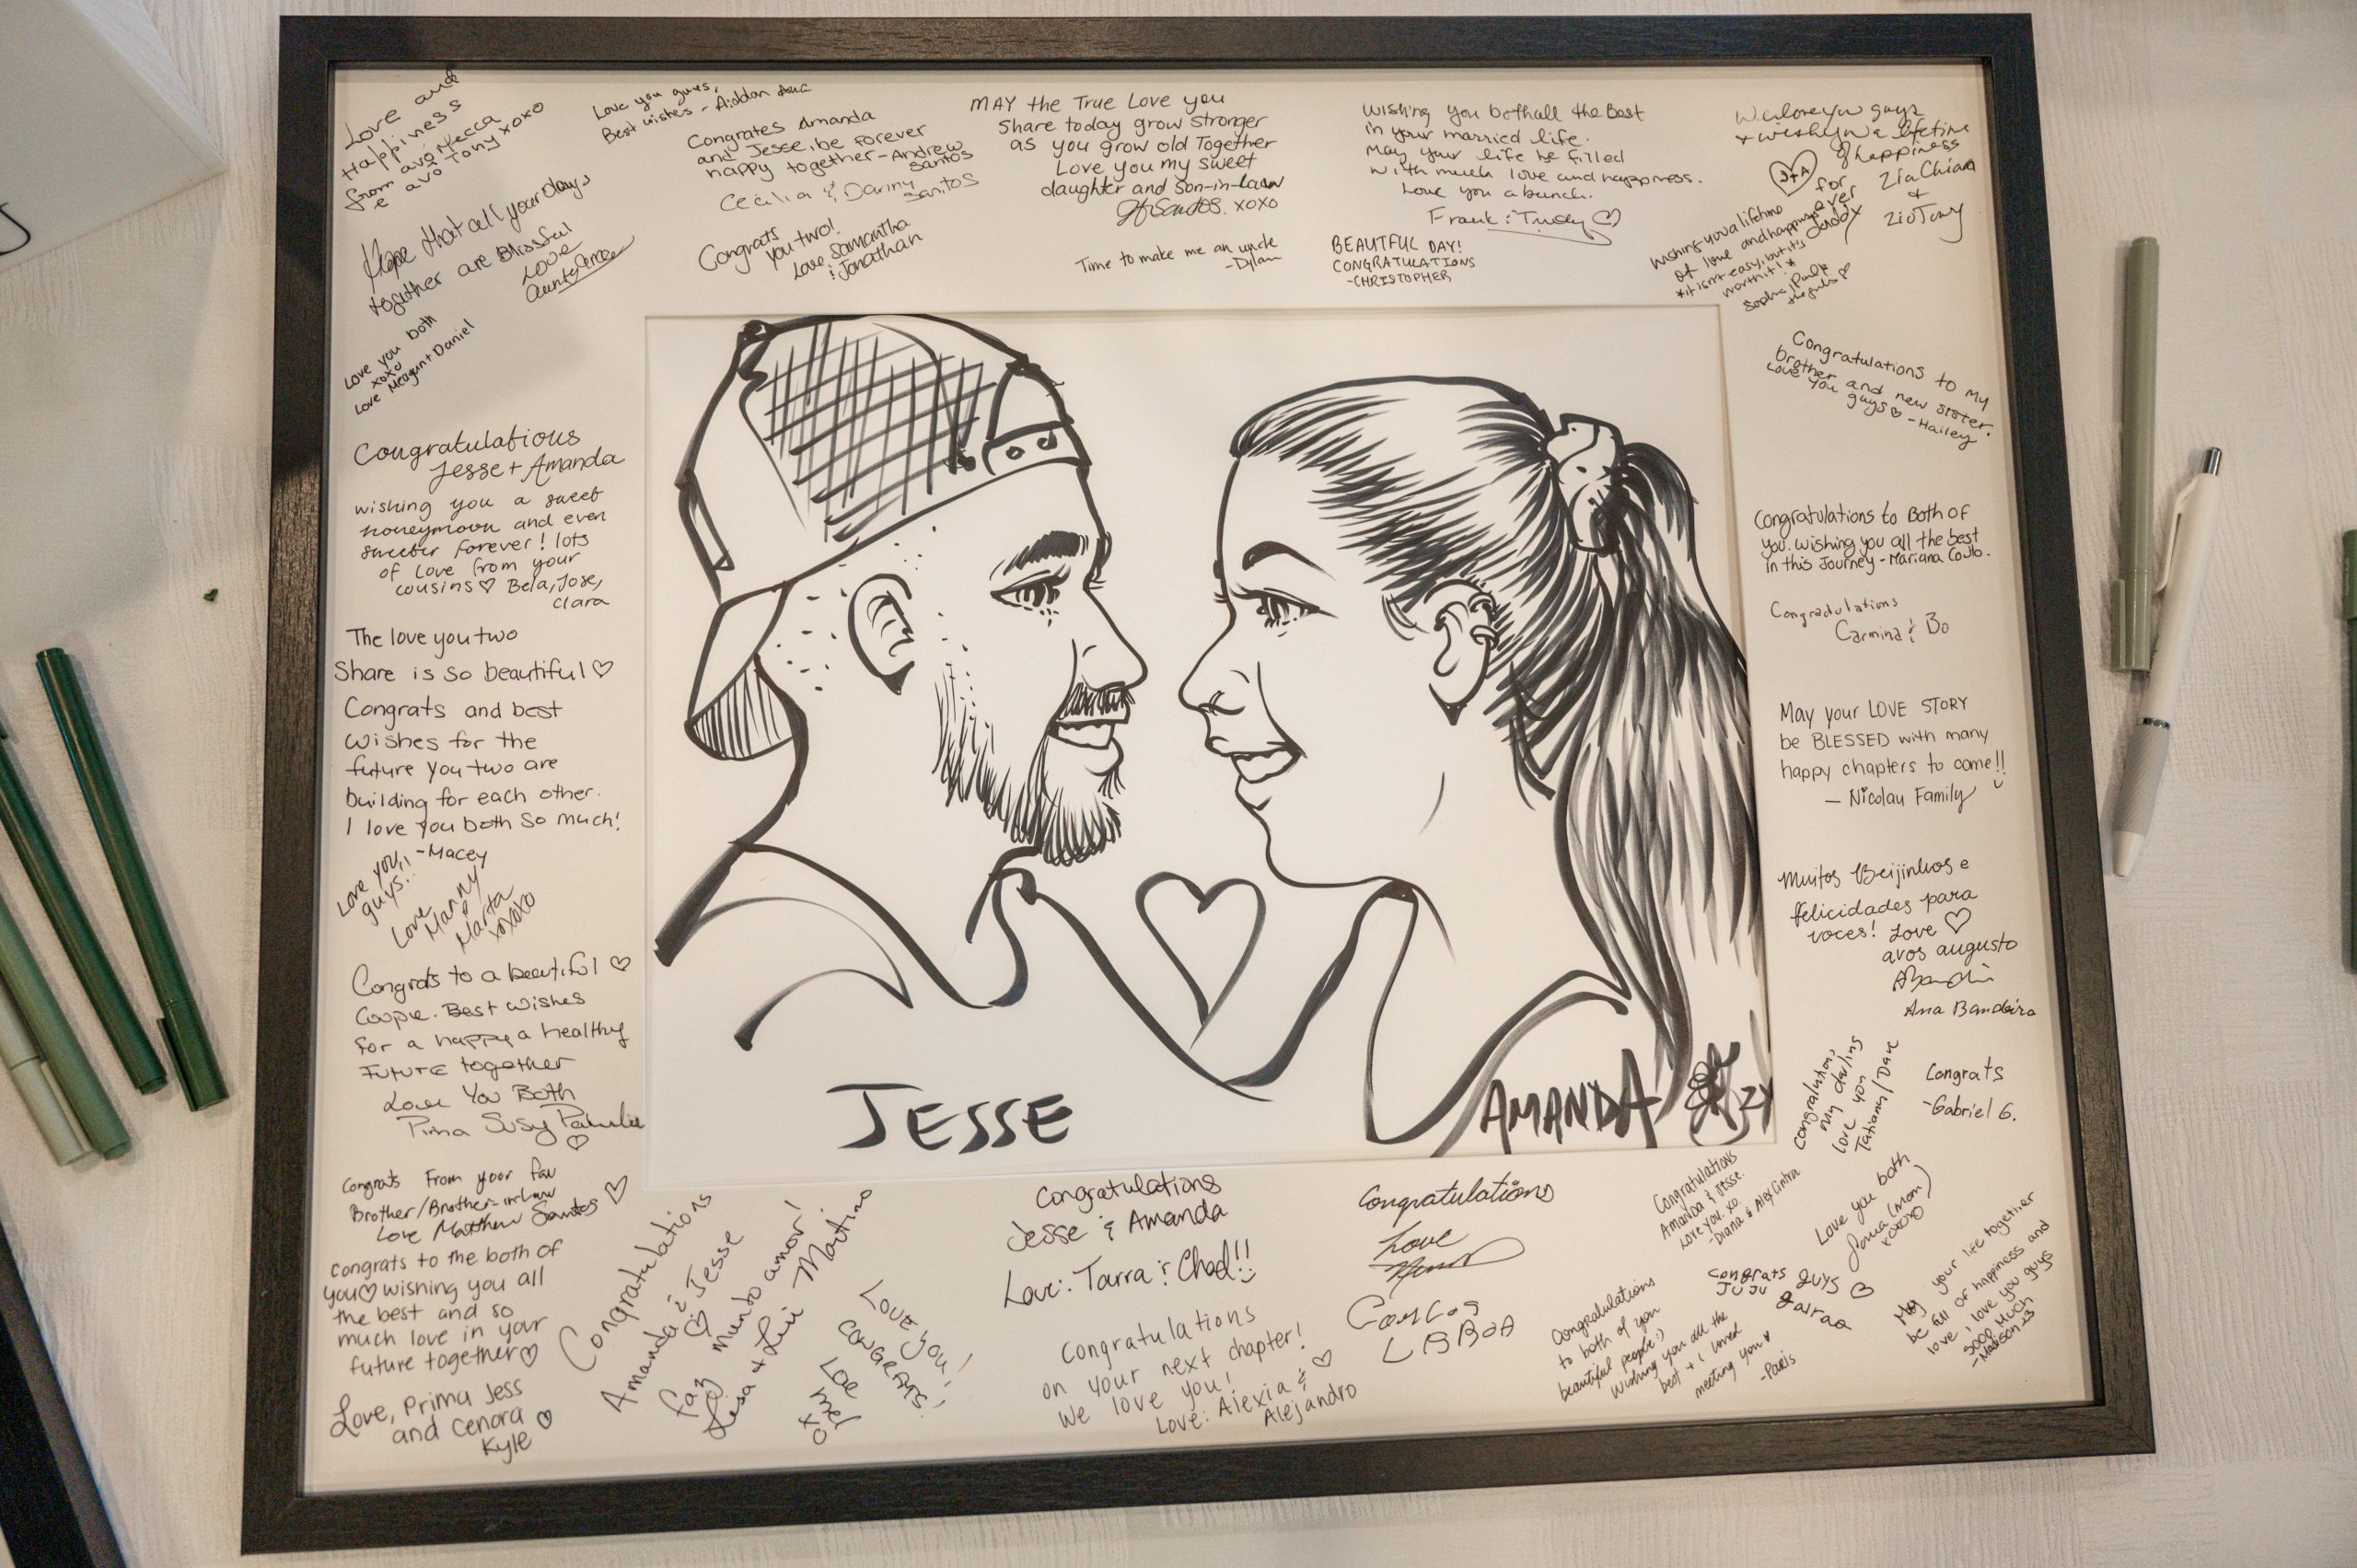 Love and
Happiness
from avó Mecca
e avô Tony xoxo
Love you guys,
Best wishes - Aiddan
Congrates Amanda
and Jesse, be forever
happy together - Andrew
Santos
Cecilia & Danny
Santos
Congrats
you two!
Love Samantha
& Jonathan
MAY the True Love you
share today grow stronger
as you grow old Together
Love you my sweet
daughter and son-in-law
Santos. xoxo
Time to make me an uncle
-Dylan
Wishing you both all the Best
in your married life.
May your life be filled
with much love and happiness.
Love you a bunch.
Frank & Trudy
BEAUTFUL DAY!
CONGRATULATIONS
-CHRISTOPHER
We love you guys
+ wish you a lifetime
of happiness
Zia Chiara
&
Zio Tony
J+A
for
ever
Wishing you a lifetime
of love and happiness
*it isn't easy, but it's
worth it! *
Sophie, Paul &
the girls
Hope that all your days
together are Blissful
Love
Love you both
xoxo
Love Meagan + Daniel
Congratulations to my
brother and new sister.
Love you
guys - Hailey
Congratulations
Jesse + Amanda
wishing you a sweet
honeymoon and even
sweeter forever! lots
of love from your
cousins Bela, Jose,
Clara
Congratulations to Both of
you. wishing you all the best
in this Journey - Mariana Couto.
Congradulations
Carmina & Bo
The love you two
Share is so beautiful
Congrats and best
wishes for the
future you two are
building for each other.
I love you both so much!
-Macey
May your LOVE STORY
be BLESSED with many
happy chapters to come!!
- Nicolau Family
Love you!!
guys!!
Love
Manny
&
Marta
xoxoxo
Muitos Beijinhos e
felicidades para
voces! Love
avos augusto
Ana Bandeira
Congrats to a beautiful
Couple. Best wishes
for a happy a healthy
Future together
Love You Both
Prima Susy
JESSE
AMANDA
Congratulations
my darlings
love you
Tatiana / Dave
Congrats
-Gabriel G.
Congrats From your fav
Brother/Brother-in-law
Love Matthew Santos
congrats to the both of
you wishing you all
the best and so
much love in your
future together
Love, Prima Jess
and Cenora
Kyle
Congratulations
Amanda & Jesse
Faz mundo amor!
Lisa + Luis Martino
Love you!
CONGRATS!
Love
Mel
xo
Congratulations
Jesse & Amanda
Love: Tarra & Chad!!
Congratulations
on your next chapter!
We love you!
Love: Alexia &
Alejandro
Congratulations
Love
Carlos
LBBOA
Congratulations
Amanda & Jesse.
Love you. xo
- Diana & Alex Cintra
Love you both
(mom)
xoxoxo
Congratulations
to both of you
beautiful people :)
Wishing you all the
best + I loved
meeting you
-Paris
congrats guys
JUJU
May your life together
be full of happiness and
love, I love you guys
sooo Much
-Madison <3